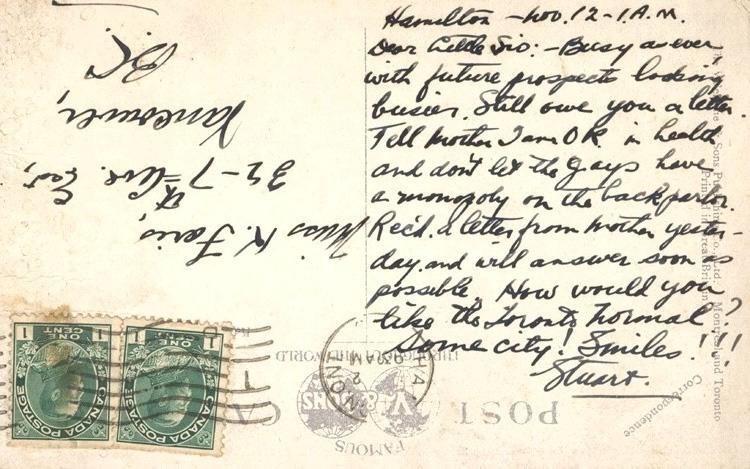 Hamilton - Nov. 12 - 1 A.M.
Dear Little Sis: - Busy as ever
with future prospects looking
busier. Still owe you a letter.
Tell Mother I am O K in health
and don't let the Gays have
a monopoly on the back parlor.
Rec'd. a letter from Mother yester-
day and will answer soon as
possible. How would you
like the Toronto Normal?
Some city! Smiles!!!
Stuart.
Miss K. Faris,
32 - 7th Ave. East,
Vancouver,
B.C.
POST CA
FAMOUS
VALENTINE'S
THROUGHOUT THE WORLD
Correspondence
Sons Publishing Co. Ltd. Montreal and Toronto
Printed in Great Britain
HAMILTON
930AM
CANADA POSTAGE
1 ONE CENT 1
CANADA POSTAGE
1 ONE CENT 1